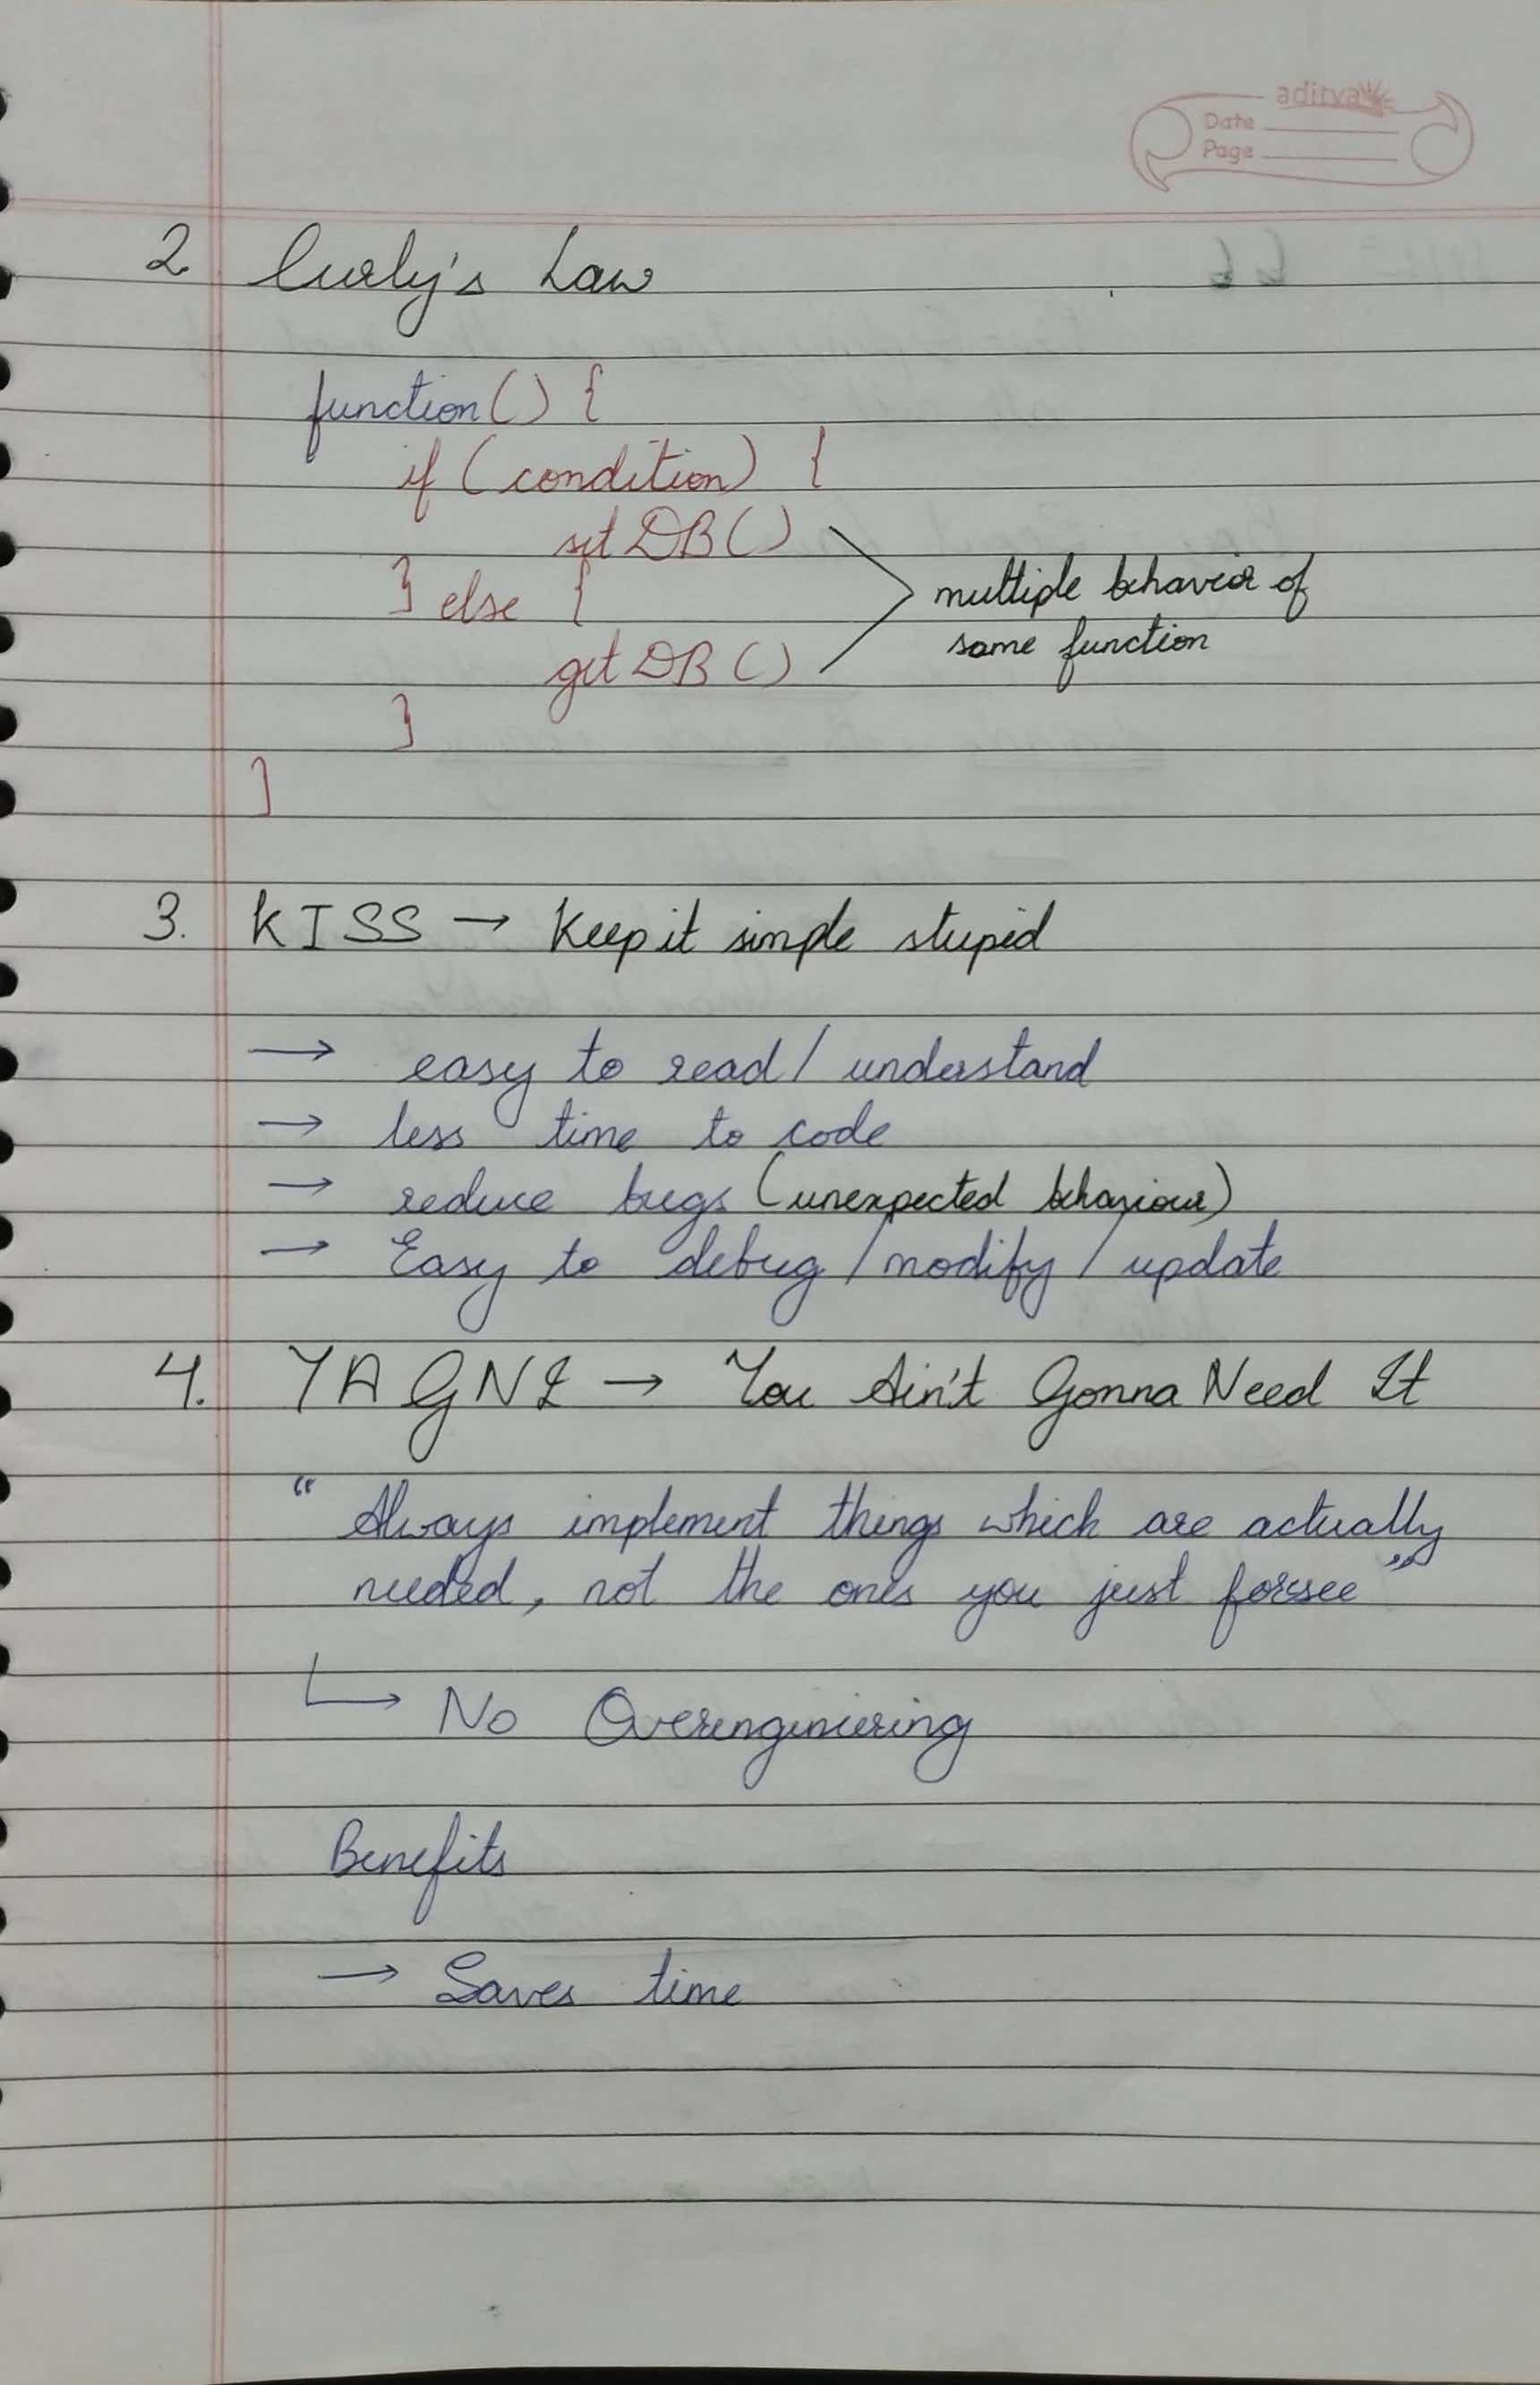 aditya
Date
Page
2 Curly's Law
function() {
if (condition) {
set DB()
} else {
get DB()
multiple behavior of
same function
}
}
3. KISS → Keep it simple stupid
→ easy to read / understand
→ less time to code
→ reduce bugs (unexpected behaviour)
→ Easy to debug / modify / update
4. YAGNI → You Ain't Gonna Need It
“ Always implement things which are actually
needed, not the ones you just forsee ”
↳ No Overengineering
Benefits
→ Saves time